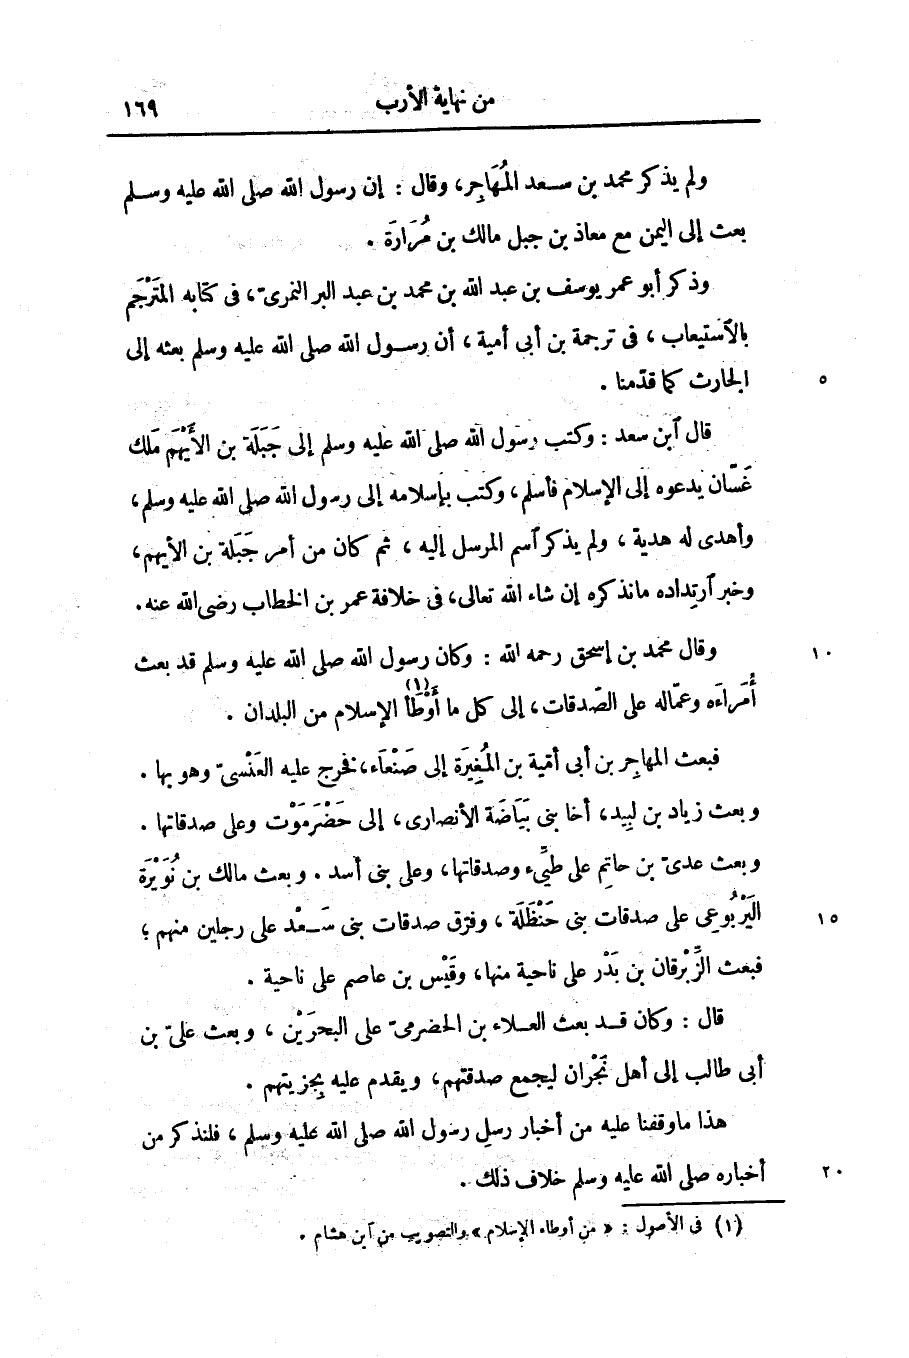 من نهاية الأرب ١٦٩
ولم يذكر محمد بن سعد المُهَاجِر، وقال : إن رسول الله صلى الله عليه وسلم
بعث إلى اليمن مع معاذ بن جبل مالك بن مُرَارَة .
وذكر أبو عمر يوسف بن عبد الله بن محمد بن عبد البر النمرىّ، فى كتابه المُتَرْجَم
بالآستيعاب ، فى ترجمة بن أبى أمية ، أن رسول الله صلى الله عليه وسلم بعثه إلى
الحارث كما قدّمنا . ٥
قال آبن سعد : وكتب رسول الله صلى الله عليه وسلم إلى جَبَلَة بن الأَيْهَم مَلك
غَسّان يدعوه إلى الإسلام فأسلم ، وكتب بإسلامه إلى رسول الله صلى الله عليه وسلم ،
وأهدى له هدية ، ولم يذكر آسم المرسل إليه ، ثم كان من أمر جَبَلة بن الأيهم ،
وخبر آرتداده مانذكره إن شاء الله تعالى، فى خلافة عمر بن الخطاب رضى الله عنه .
وقال محمد بن إسحق رحمه الله : وكان رسول الله صلى الله عليه وسلم قد بعث ١٠
أُمَراءَه وعمّاله على الصّدقات ، إلى كل ما أَوْطَأ (١) الإسلام من البلدان .
فبعث المهاجر بن أبى أميّة بن المُغِيَرة إلى صَنْعَاء ، فخرج عليه العَنْسىّ وهو بها .
وبعث زياد بن لَبِيد، أخا بنى بَيَاضَة الأنصارى، إلى حَضْرَمَوْت وعلى صدقاتها .
وبعث عدىّ بن حاتِم على طيِّىء وصدقاتها، وعلى بنى أسد . وبعث مالك بن نُوَيْرَة
اليَرْبُوعِى على صدقات بنى حَنْظَلَة ، وفرّق صدقات بنى سَعْد على رجلين منهم ؛ ١٥
فبعث الزِّبْرقان بن بَدْر على ناحية منها، وقَيْس بن عاصم على ناحية .
قال : وكان قد بعث العلاء بن الحضرمىّ على البحرَيْن ، وبعث علىّ بن
أبى طالب إلى أهل نَجْران ليجمع صدقتهم، ويقدم عليه بِجزيتهم .
هذا ماوقفنا عليه من أخبار رسل رسول الله صلى الله عليه وسلم ، فلنذكر من
أخباره صلى الله عليه وسلم خلاف ذلك . ٢٠
(١) فى الأصول : « من أوطاء الإسلام » والتصويب من آبن هشام .